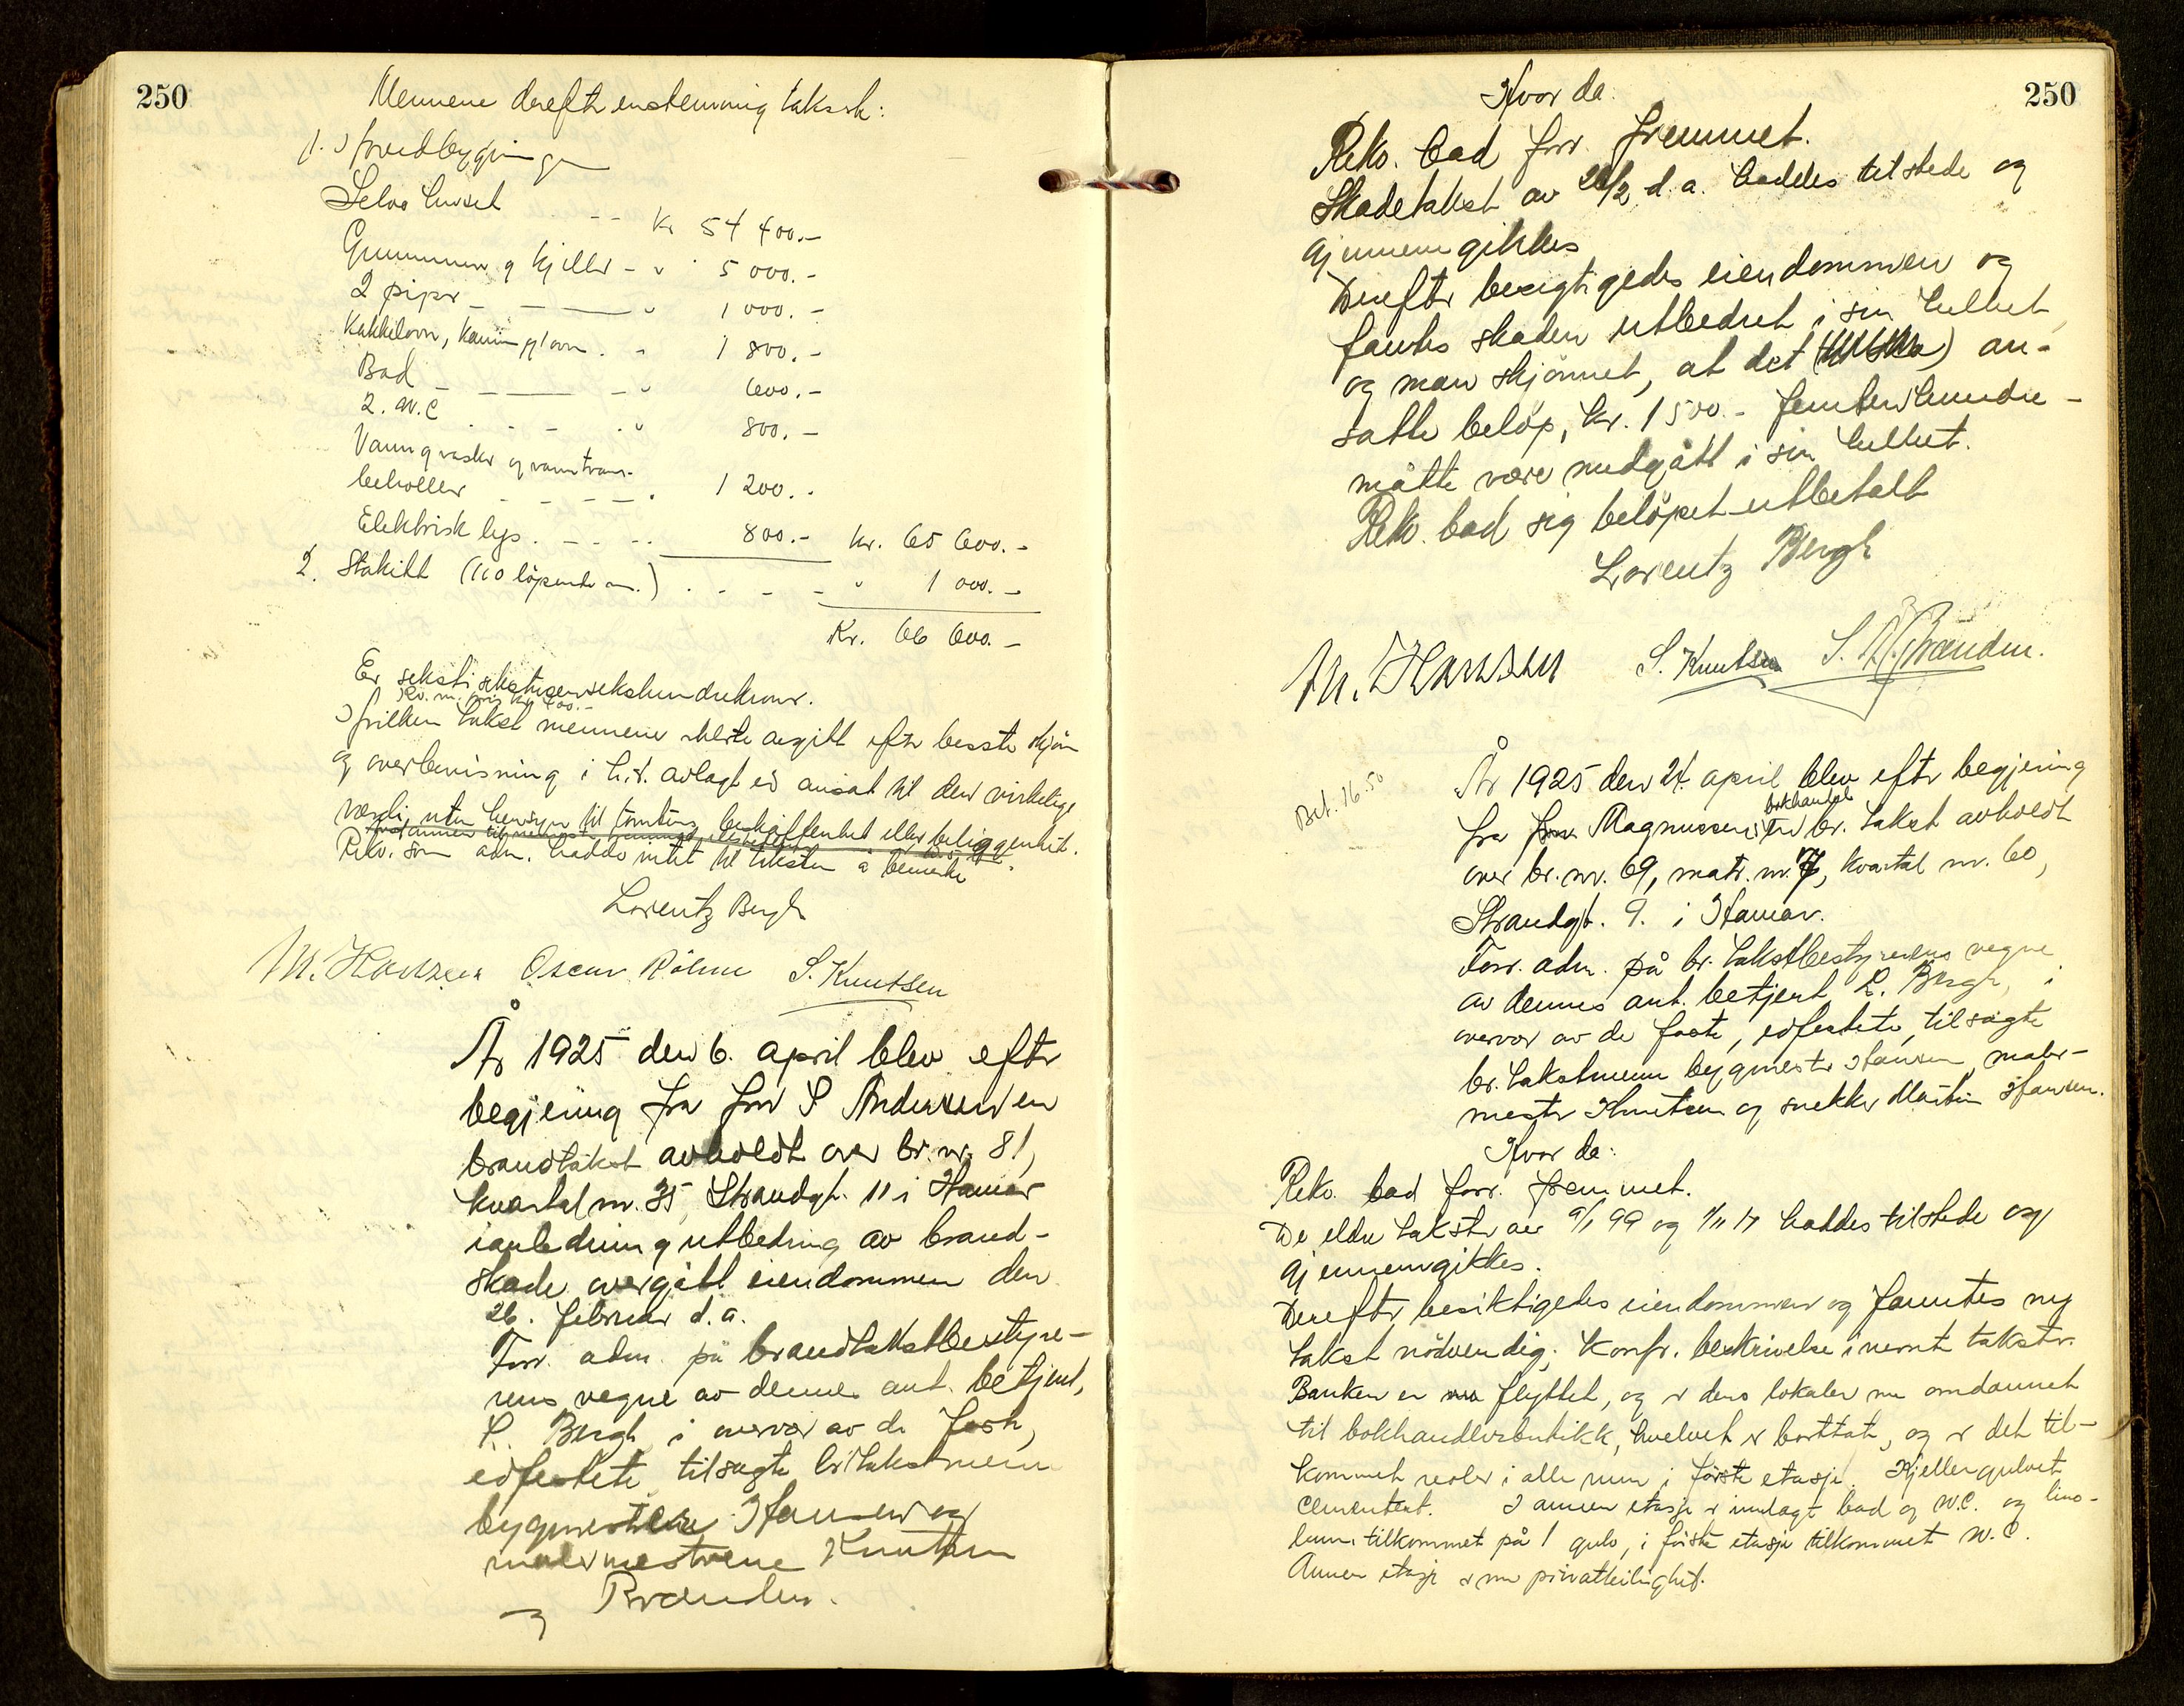 250
Mennene derefter enstemmig takserte:
1.) Hovedbygningen
Selve huset - - Kr 54 400.-
Grunnmur og kjeller - " 5 000.-
2 piper - - " 1 000.-
Kakkelovn, kamin, ovn. " 1 800.-
Bad - - " 600.-
2. W.C. - - " 800.-
Vann q vasker og varmtvanns-
beholder - - - - 1 200.-
Elektrisk lys. - - .. 800.- kr. 65 600.-
2. Stakitt (110 löpende m.) . - - - " 1 000.-
Kr. 66 600.-
Er seksti sekstusensekshundrekroner.
Hvilken takst mennene erklærte avgitt efter beste skjön
og overbevisning i h.t. avlagt ed ansat til den virkelige
værdi, uten hensyn til tomtens beskaffenhet eller beliggenhet.
Rekv. som adm. hadde intet til taksten å bemerke
Lorentz Bergh
M. Hansen Oscar Röhne S. Knutsen
År 1925 den 6. april blev efter
begjæring fra fru S Andersen en
brandtakst avholdt over br.nr. 81,
kvartal nr. 35, Strandgt. 11 i Hamar
ianledning utbedring av brand-
skade overgått eiendommen den
26. februar d.a.
Forr. adm. på brandtakstbestyre-
rens vegne av dennes aut. betjent,
L. Bergh i overvær av de faste,
edfestete tilsagte br.takstmenn
bygmester Hansen og
malermestrene Knutsen
og Brænden.
250
Hvor da:
Rekv. bad forr. fremmet.
Skadetakst av 28/2 d.a. haddes tilstede og
gjennemgikkes
Derefter besigtigedes eiendommen og
fantes skaden utbedret i sin helhet,
og man skjönnet, at det an-
satte belöp, kr. 1500.- femtenhundre -
måtte være medgått i sin helhet.
Rekv. bad sig belöpet utbetalt
Lorentz Bergh
M. Hansen S. Knutsen S. Brænden.
Bet. 16.50
År 1925 den 24. april blev efter begjæring
bokhandel
fra Magnussens en br. takst avholdt
over br.nr. 69, matr. nr. 7, kvartal nr. 60,
Strandgt. 9. i Hamar.
Forr. adm. på br. takstbestyrerens vegne
av dennes aut. betjent L. Bergh, i
overvær av de faste, edfestete, tilsagte
br. takstmenn bygmester Hansen, maler-
mester Knutsen og snekker Martin Hansen.
Hvor da:
Rekv. bad forr. fremmet.
De eldre takster av 9/1 99 og 1/11 17 haddes tilstede og
gjennemgikkes.
Derefter besiktigedes eiendommen og fanntes ny
takst nödvendig. Konfr. beskrivelse i nevnt takster.
Banken er flyttet, og er dens lokaler nu omdannet
til bokhandlerbutikk, hvelvet er borttatt, og er det til-
kommet reoler i alle rum i förste etasje. Kjellergulvet
cementert. I annen etasje er innlagt bad og W.C. og lino-
leum tilkommet på 1 gulv, i förste etasje tilkommet W.C.
Annen etasje er nu privatleilighet.